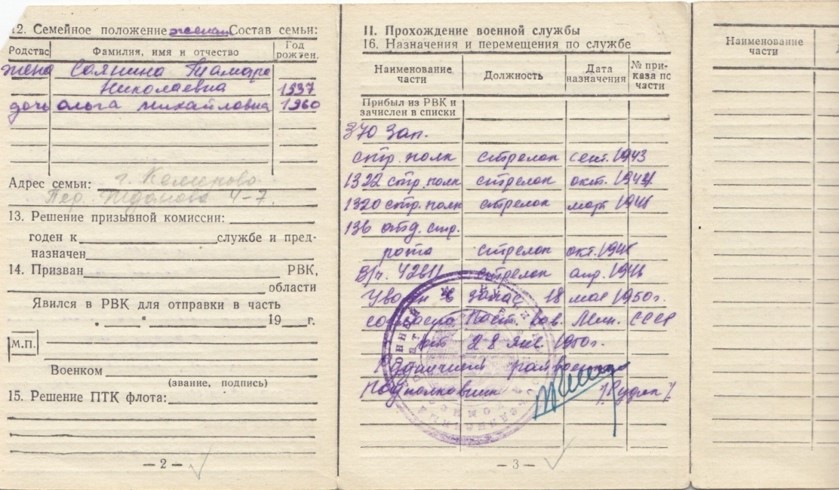 12. Семейное положение женат Состав семьи:
Родство Фамилия, имя и отчество Год рожден.
жена Саянина Тамара
Николаевна 1937
дочь Ольга Михайловна 1960
Адрес семьи: г. Кемерово
Пер. 4-7.
13. Решение призывной комиссии:
годен к службе и пред-
назначен
14. Призван РВК,
области
Явился в РВК для отправки в часть
" " 19 г.
М.П.
Военком
(звание, подпись)
15. Решение ПТК флота:
— 2 —
II. Прохождение военной службы
16. Назначения и перемещения по службе
Наименование части Должность Дата назначения № при-каза по части
Прибыл из РВК и
зачислен в списки
370 Зап.
стр. полк стрелок сент. 1943
1322 стр. полк стрелок окт.
1320 стр. полк стрелок март
136 отд. стр.
рота стрелок окт.
В/ч. стрелок апр. 1946
Уволен в запас 18 мая 1950г.
Пост. Сов. Мин. СССР
от 28 янв. 1950г.
Подполковник
— 3 —
Наименование
части